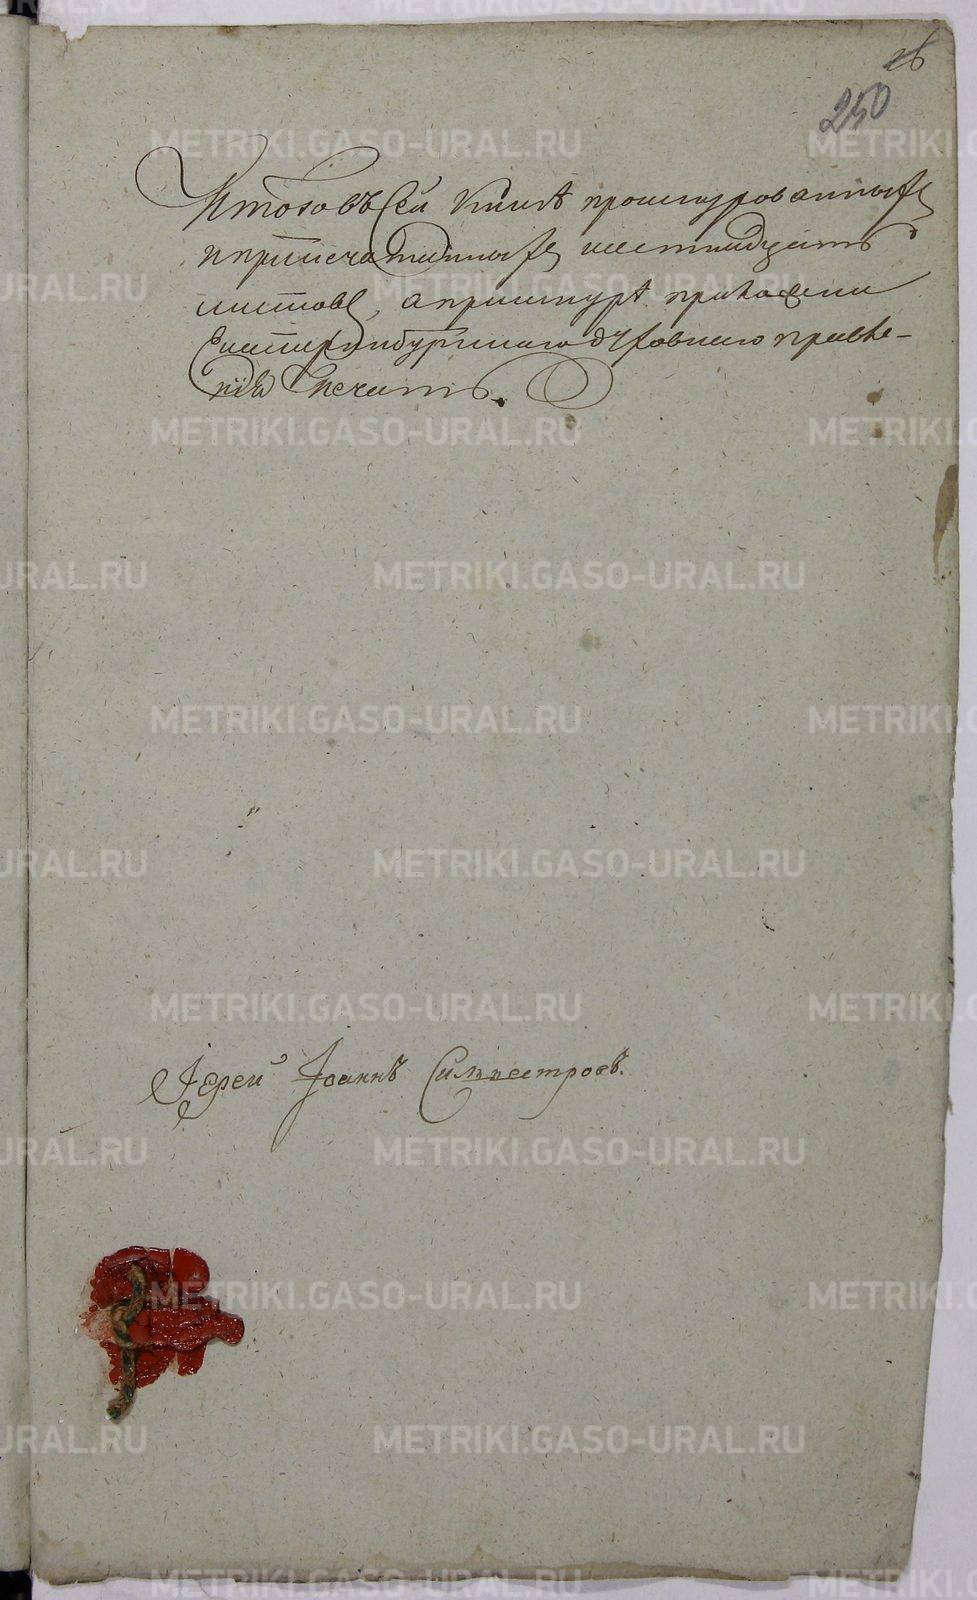 16
250
Итого въ сей книгѣ прошнурованныхъ
и припечатанныхъ шестнадцать
листовъ, а при шнурѣ приложена
Екатеринбургскаго духовнаго правле-
нія печать.
Іерей Іоаннъ Силвестровъ.
METRIKI.GASO-URAL.RU